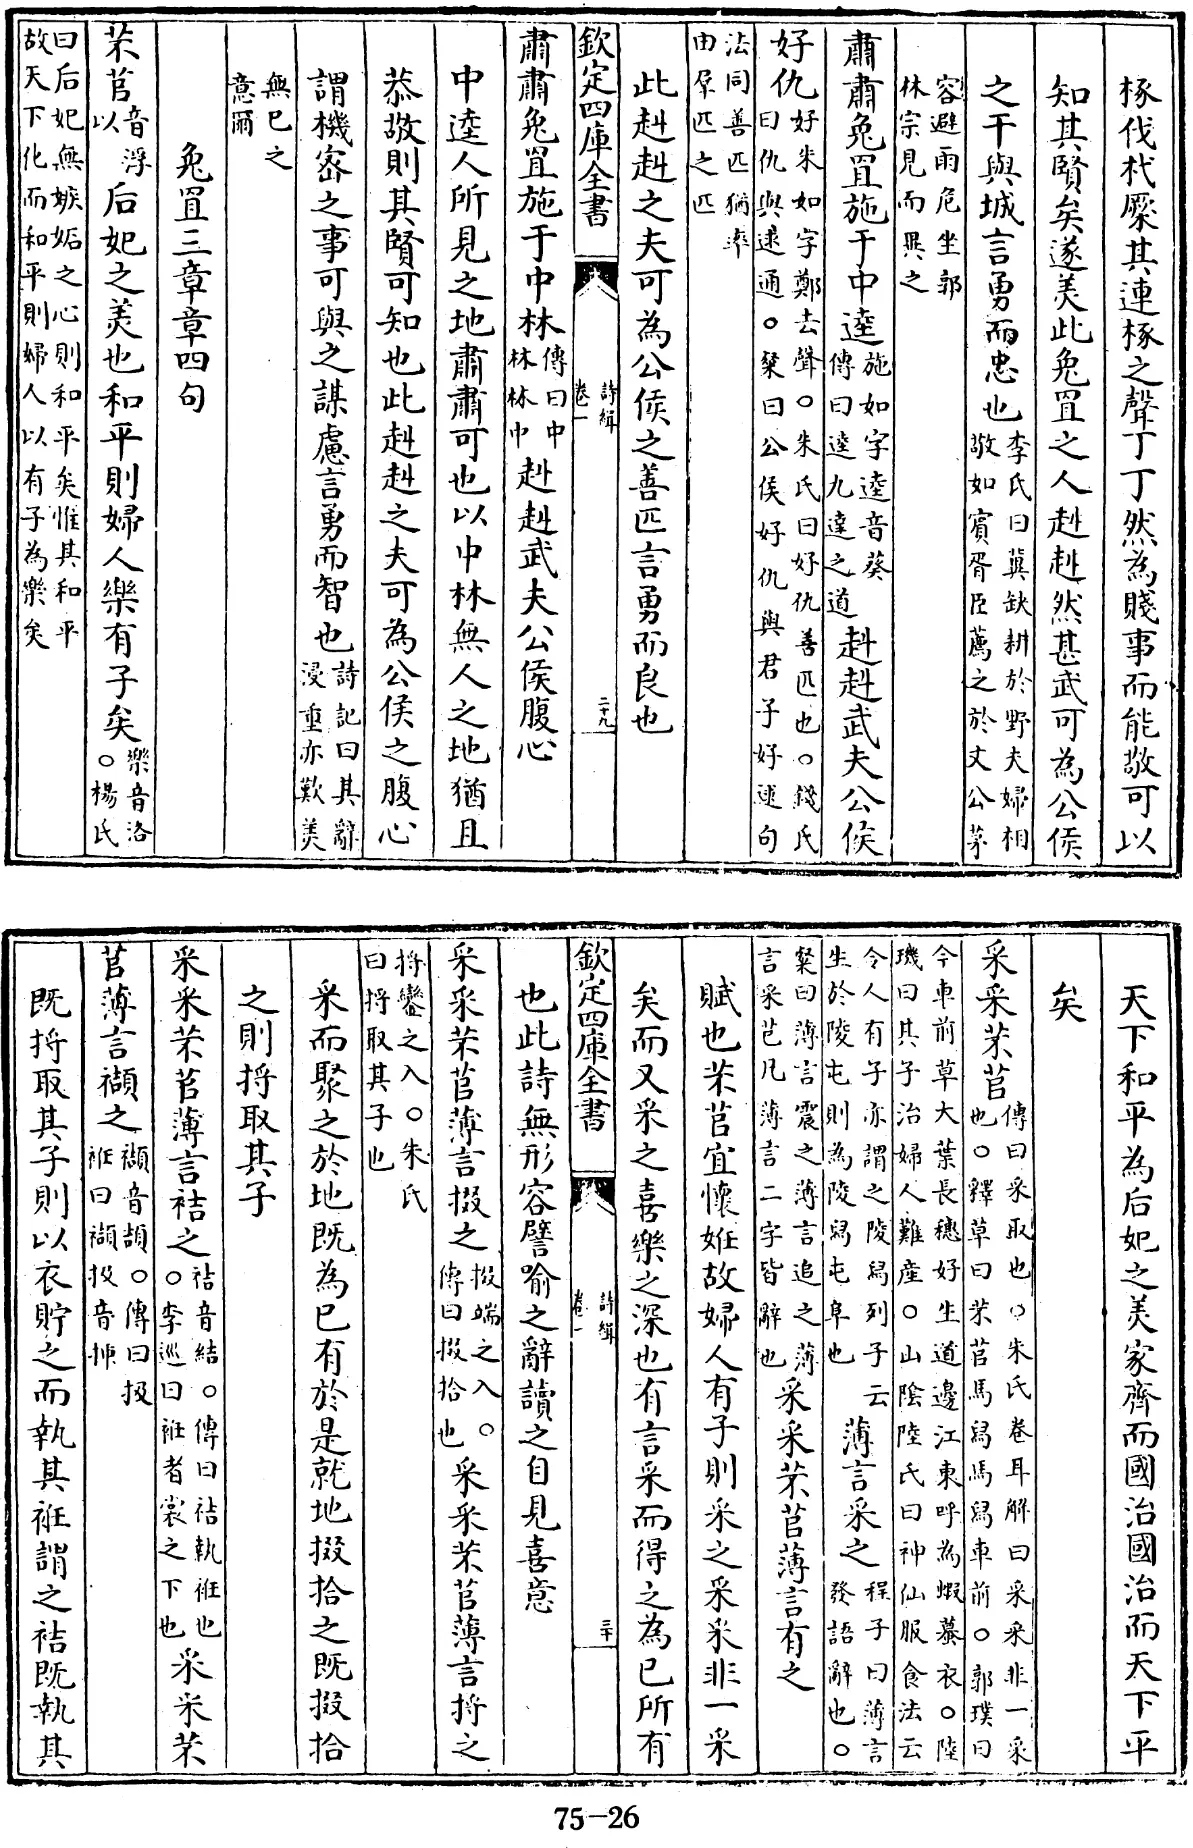 椓伐杙橜其連椓之聲丁丁然為賤事而能敬可以
知其賢矣遂美此兔罝之人赳赳然甚武可為公侯
之干與城言勇而忠也李氏曰冀缺耕於野夫婦相
敬如賔胥臣薦之於文公茅
容避雨危坐郭
林宗見而異之
肅肅兔罝施于中逵施如字逵音葵
傳曰逵九達之道赳赳武夫公侯
好仇好朱如字鄭去聲○朱氏曰好仇善匹也○錢氏
曰仇與逑通○粲曰公侯好仇與君子好逑句
法同善匹猶率
由羣匹之匹
此赳赳之夫可為公侯之善匹言勇而良也
欽定四庫全書
詩緝
卷一
二十九
肅肅兔罝施于中林傳曰中
林林中赳赳武夫公侯腹心
中逵人所見之地肅肅可也以中林無人之地猶且
恭敬則其賢可知也此赳赳之夫可為公侯之腹心
謂機宻之事可與之謀慮言勇而智也詩記曰其辭
浸重亦歎美
無已之
意爾
兔罝三章章四句
芣苢音浮
以后妃之美也和平則婦人樂有子矣樂音洛
○楊氏
曰后妃無嫉妬之心則和平矣惟其和平
故天下化而和平則婦人以有子為樂矣
天下和平為后妃之美家齊而國治國治而天下平
矣
采采芣苢傳曰采取也○朱氏卷耳解曰采采非一采
也○釋草曰芣苢馬舄馬舄車前○郭璞曰
今車前草大葉長穗好生道邊江東呼為蝦蟇衣○陸
璣曰其子治婦人難產○山陰陸氏曰神仙服食法云
令人有子亦謂之陵舄列子云
生於陵屯則為陵舄屯阜也薄言采之程子曰薄言
發語辭也○
粲曰薄言震之薄言追之薄
言采芑凡薄言二字皆辭也采采芣苢薄言有之
賦也芣苢宜懷姙故婦人有子則采之采采非一采
矣而又采之喜樂之深也有言采而得之為已所有
欽定四庫全書
詩緝
卷一
三十
也此詩無形容譬喻之辭讀之自見喜意
采采芣苢薄言掇之掇端之入○
傳曰掇拾也采采芣苢薄言捋之
捋鑾之入○朱氏
曰捋取其子也
采而聚之於地既為已有於是就地掇拾之既掇拾
之則捋取其子
采采芣苢薄言袺之袺音結○傳曰袺執袵也
○李巡曰袵者裳之下也采采芣
苢薄言襭之襭音頡○傳曰扱
袵曰襭扱音揷
既捋取其子則以衣貯之而執其袵謂之袺既執其
75-26